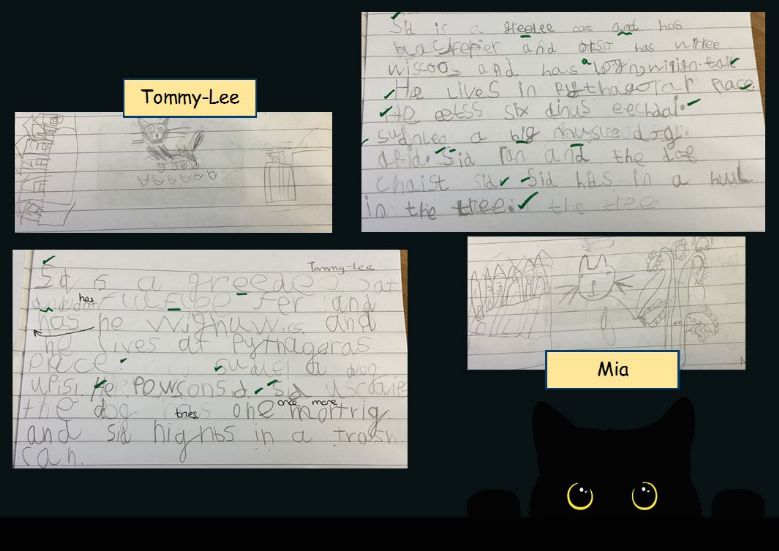 Tommy-Lee
Sid is a greelee cat and has
blac fepier and otsr has wihtee
wiscoos and has a long wigin tail
He lives in Pythagorar place.
He eetss six dinus eechdai.
sudnlea a big musice dog.
afid. Sid ran and the dog
chaist sid. Sid hids in a huul
in the tree. the tree
Tommy-Lee
Sid is a greede sat
has
and flufee fer and
has he and
he lives at Pythagoras
place. sudel a dog
upisi. He powsonsid. Sid
the dog has one mor trig
tries once more
and sid highbs in a trash
can.
Mia